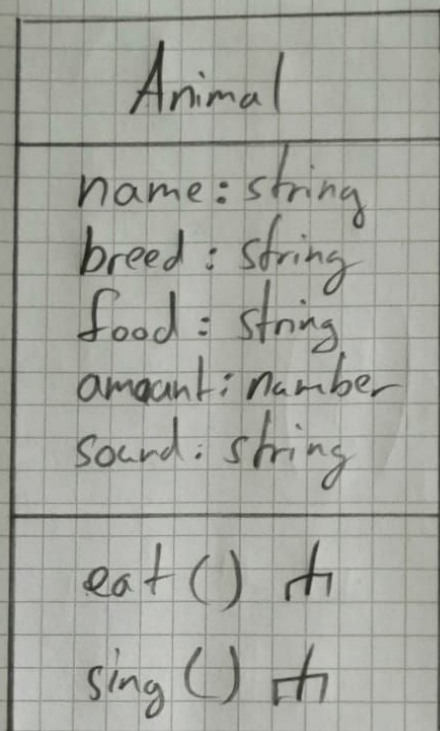 Animal
name: string
breed: string
food: string
amount: number
sound: string
eat()
sing()